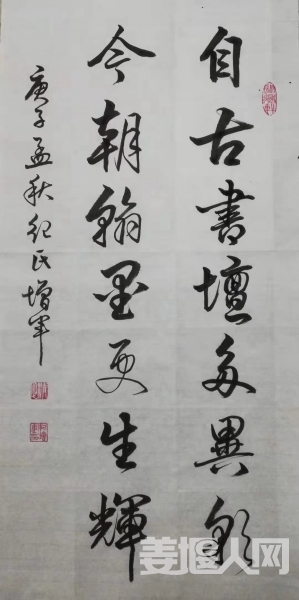 自古書壇多異彩
今朝翰墨更生輝
庚子孟秋紀氏增軍
姜堰人网